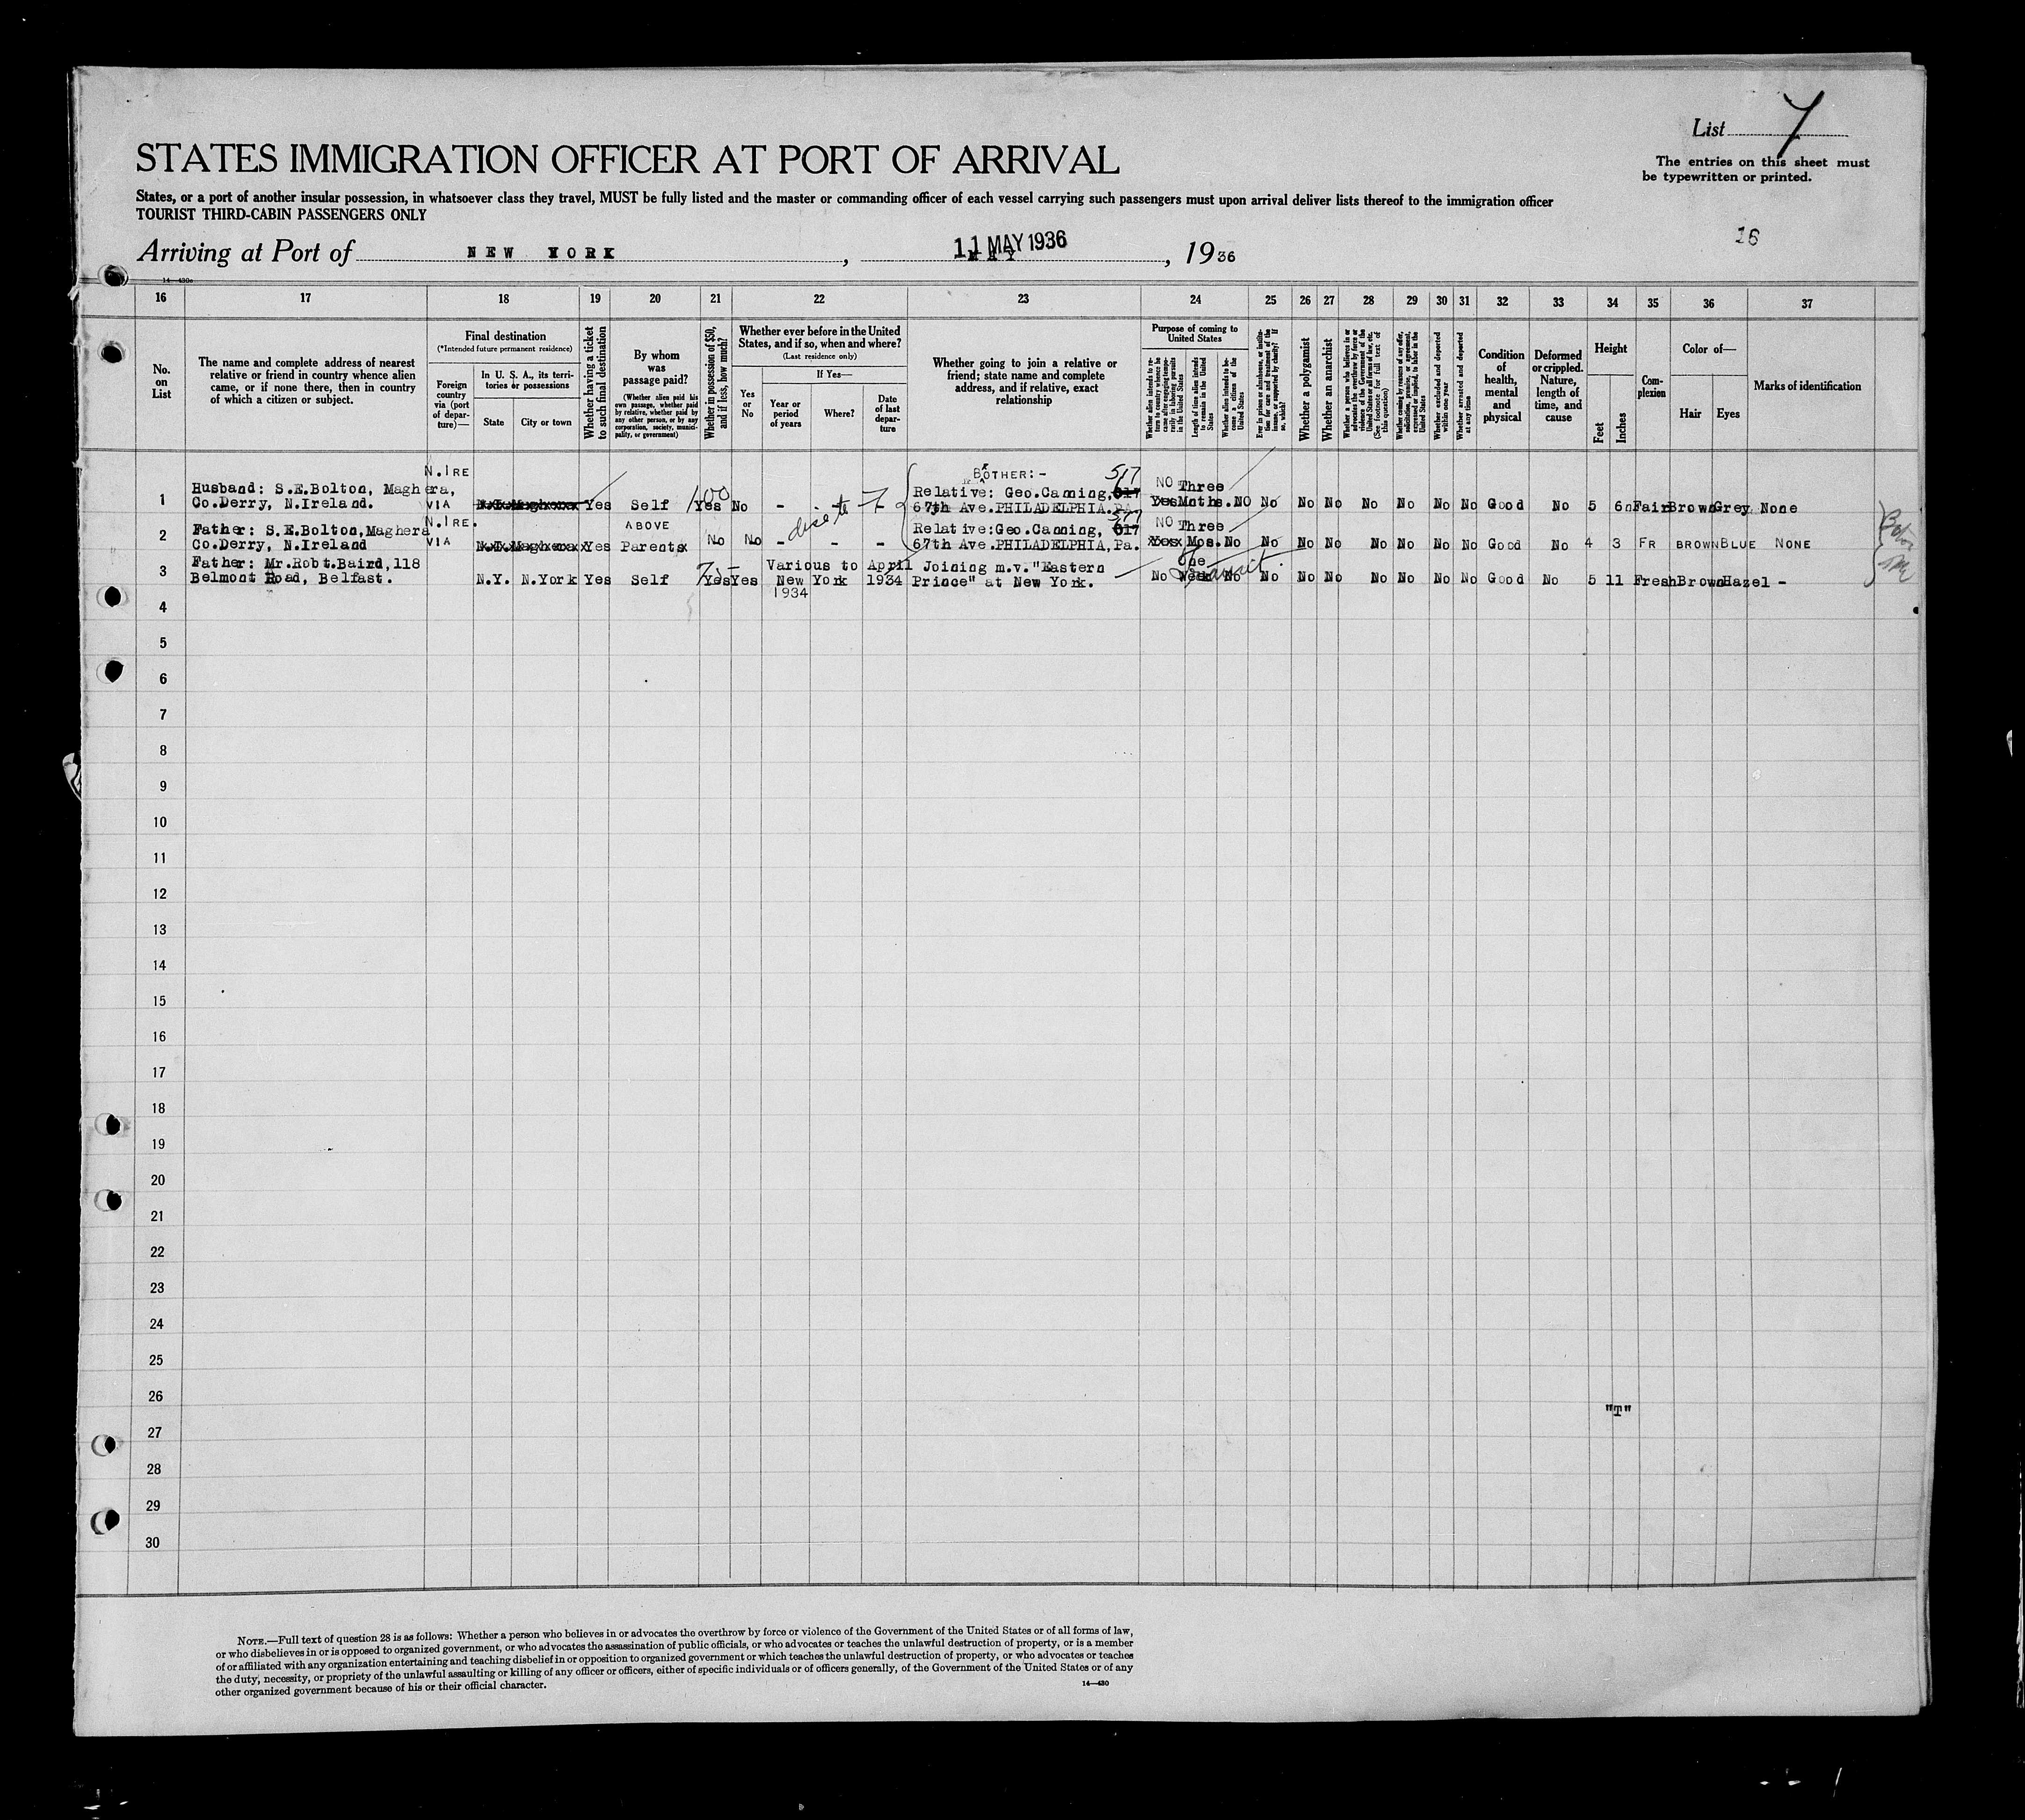 List 7
STATES IMMIGRATION OFFICER AT PORT OF ARRIVAL
The entries on this sheet must
be typewritten or printed.
States, or a port of another insular possession, in whatsoever class they travel, MUST be fully listed and the master or commanding officer of each vessel carrying such passengers must upon arrival deliver lists thereof to the immigration officer
TOURIST THIRD-CABIN PASSENGERS ONLY
16
Arriving at Port of NEW YORK, 11 MAY 1936, 1936
16 17 18 19 20 21 22 23 24 25 26 27 28 29 30 31 32 33 34 35 36 37
No.
on
List
The name and complete address of nearest
relative or friend in country whence alien
came, or if none there, then in country
of which a citizen or subject.
Final destination
(*Intended future permanent residence)
Foreign
country
via (port
of depar-
ture)—
In U. S. A., its terri-
tories or possessions
State
City or town
Whether having a ticket
to such final destination
By whom
was
passage paid?
(Whether alien paid his
own passage, whether paid
by relative, whether paid by
any other person, or by any
corporation, society, munici-
pality, or government)
Whether in possession of $50,
and if less, how much?
Whether ever before in the United
States, and if so, when and where?
(Last residence only)
Yes
or
No
If Yes—
Year or
period
of years
Where?
Date
of last
depar-
ture
Whether going to join a relative or
friend; state name and complete
address, and if relative, exact
relationship
Purpose of coming to
United States
Whether alien intends to re-
turn to country whence he
came after engaging tempo-
rarily in laboring pursuits
in the United States
Length of time alien intends
to remain in the United
States
Whether alien intends to be-
come a citizen of the
United States
Ever in prison or almshouse, or institu-
tion for care and treatment of the
insane, or supported by charity? If
so, which?
Whether a polygamist
Whether an anarchist
Whether a person who believes in or
advocates the overthrow by force or
violence of the Government of the
United States or all forms of law, etc.
(See footnote for full text of
this question)
Whether coming by reasons of any offer,
solicitation, promise, or agreement,
expressed or implied, to labor in the
United States
Whether excluded and deported
within one year
Whether arrested and deported
at any time
Condition
of
health,
mental
and
physical
Deformed
or crippled.
Nature,
length of
time, and
cause
Height
Feet
Inches
Com-
plexion
Color of—
Hair
Eyes
Marks of identification
N.IRE BOTHER:- 517
1 Husband: S.E.Bolton, Maghera, 100 Relative: Geo.Canning, 617 NO Three
Co.Derry, N.Ireland. VIA N.I. Maghera Yes Self Yes No - - - 67th Ave. PHILADELPHIA. PA. Yes Mnths. NO No No No No No No No Good No 5 6 Fair Brown Grey None
N.IRE. ABOVE 517
2 Father: S.E.Bolton, Maghera Relative: Geo.Canning, 617 NO Three
Co.Derry, N.Ireland VIA N.I. Maghera Yes Parents No No - - - 67th Ave. PHILADELPHIA, Pa. Yes Mos. No No No No No No No No Good No 4 3 FR BROWN BLUE NONE
3 Father: Mr.Robt.Baird, 118 Various to April Joining m.v. "Eastern One Transit
Belmont Road, Belfast. N.Y. N.York Yes Self Yes Yes New York 1934 Prince" at New York. No Week No No No No No No No No Good No 5 11 Fresh Brown Hazel -
1934
4
5
6
7
8
9
10
11
12
13
14
15
16
17
18
19
20
21
22
23
24
25
26
"T"
27
28
29
30
NOTE.—Full text of question 28 is as follows: Whether a person who believes in or advocates the overthrow by force or violence of the Government of the United States or of all forms of law,
or who disbelieves in or is opposed to organized government, or who advocates the assassination of public officials, or who advocates or teaches the unlawful destruction of property, or is a member
of or affiliated with any organization entertaining and teaching disbelief in or opposition to organized government or which teaches the unlawful destruction of property, or who advocates or teaches
the duty, necessity, or propriety of the unlawful assaulting or killing of any officer or officers, either of specific individuals or of officers generally, of the Government of the United States or of any
other organized government because of his or their official character.
14—430